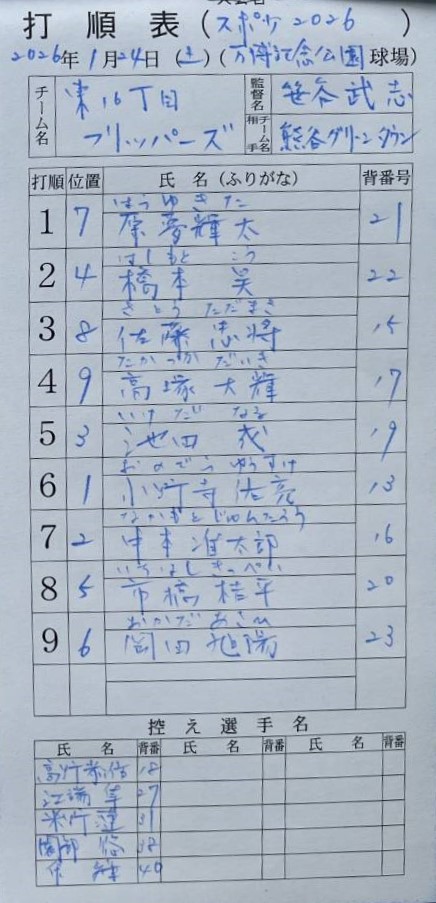 打順表(スポリク2026 )
2026年1月24日(土)(万博記念公園球場)
チーム名 東16丁目フリッパーズ 監督名 笹谷武志
相手チーム名 熊谷グリーンタウン
打順 位置 氏名(ふりがな) 背番号
はら ゆきた
1 7 原 夢輝太 21
はしもと こう
2 4 橋本 昊 22
さとう ただまさ
3 8 佐藤 忠将 15
たかつか だいき
4 9 高塚 大輝 17
いけだ なる
5 3 池田 成 19
おのでら ゆうすけ
6 1 小野寺 佑亮 13
なかもと じゅんたろう
7 2 中本 准太郎 16
いちはし きっぺい
8 5 市橋 桔平 20
おかだ あさひ
9 6 岡田 旭陽 23
控え選手名
氏名 背番 氏名 背番 氏名 背番
18
江端 27
米竹 蓮 31
悠 38
40